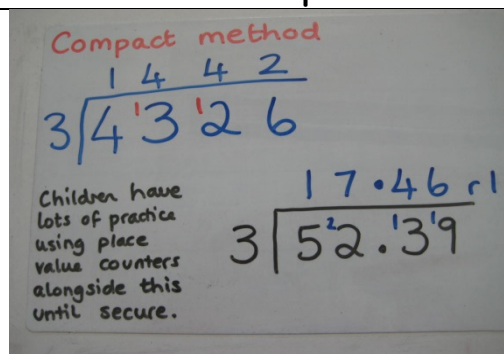 Compact method
1 4 4 2
3 4 ¹3 ¹2 6
Children have
lots of practice
using place
value counters
alongside this
until secure.
1 7 . 4 6 r 1
3 5 ²2 . ¹3 ¹9